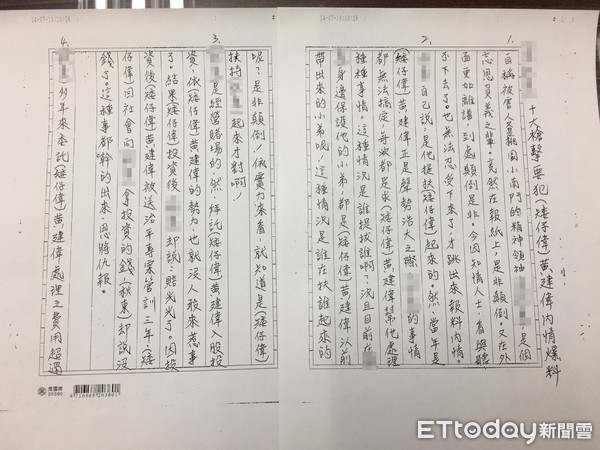 十大槍擊要犯(矮仔偉)黃建偉內情爆料
1. 自稱被害人是桃園小南門的精神領袖 是個
忘恩負義之輩,竟然在報紙上,是非顛倒,又在外
面更加離譜,到處顛倒是非。今因知情人士,看與聽
不下去了。也無法忍受下來了,才跳出來報料內情。
2. 自己說:是他提扶(矮仔偉)起來的。然,當年是
(矮仔偉)黃建偉正是聲勢浩大之際, 的事情
都無法搞定,每次都是求(矮仔偉)黃建偉幫他處理
種種事情。這種情況是誰提拔誰啊?況且目前在
身邊保護他的小弟,都是(矮仔偉)黃建偉以前
帶出來的小弟呢!這種情況是誰在扶誰起來的
呢?是非顛倒!依實力來看,就知道是(矮仔偉)
扶持 起來才對啊!
3. 是經營賭場的,然,拜託(矮仔偉)黃建偉入股投
資,依(矮仔偉)黃建偉的勢力,也就沒人敢來惹事
了。結果(矮仔偉)投資後 卻說:賠光光了。因投
資後(矮仔偉)黃建偉被送治平專案管訓三年,(矮
仔偉)回社會向 拿投資的錢 卻說沒
錢了。這種事都幹的出來,恩將仇報。
4. 多年來委託(矮仔偉)黃建偉處理之費用超過
ETtoday新聞雲